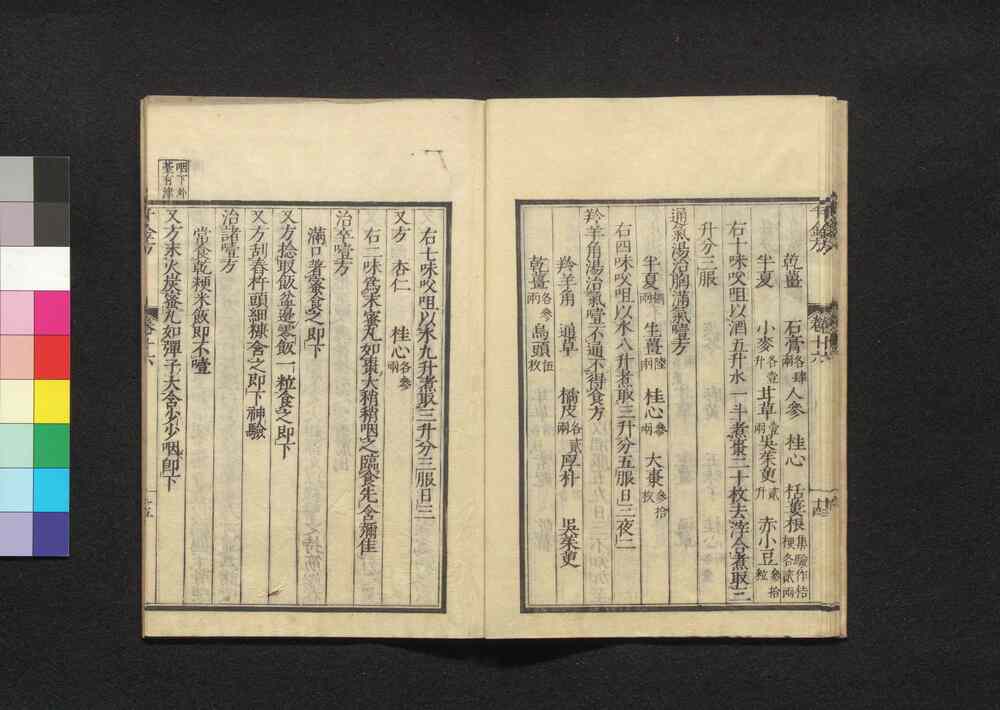 千金方 卷十六
乾薑 石膏各肆兩 人參 桂心 栝蔞根集驗作桔梗各貳兩
半夏 小麥各壹升 甘草壹兩 吳茱萸貳升 赤小豆參拾粒
右十味㕮咀以酒五升水一斗煮棗二十枚去滓合煮取三
升分三服
通氣湯治胸滿氣噎方
半夏捌兩 生薑陸兩 桂心參兩 大棗參拾枚
右四味㕮咀以水八升煮取三升分五服日三夜二
羚羊角湯治氣噎不通不得食方
羚羊角 通草 橘皮各貳兩 厚朴 吳茱萸
乾薑各參兩 烏頭伍枚
右七味㕮咀以水九升煮取三升分三服日三
又方 杏仁 桂心各參兩
右二味為末蜜丸如棗大稍稍咽之臨食先含彌佳
治卒噎方
滿口著蜜食之即下
又方捻取飯盆邊零飯一粒食之即下
又方刮舂杵頭細糠含之即下神驗
治諸噎方
常食乾粳米飯即不噎
又方末火炭蜜丸如彈子大含少少咽即下
咽下外臺有津